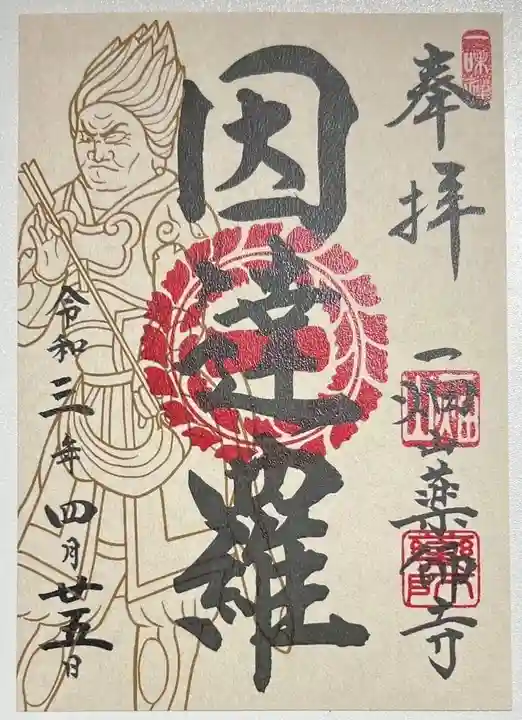 奉拝
一畑山薬師寺
因達羅
令和三年四月廿五日